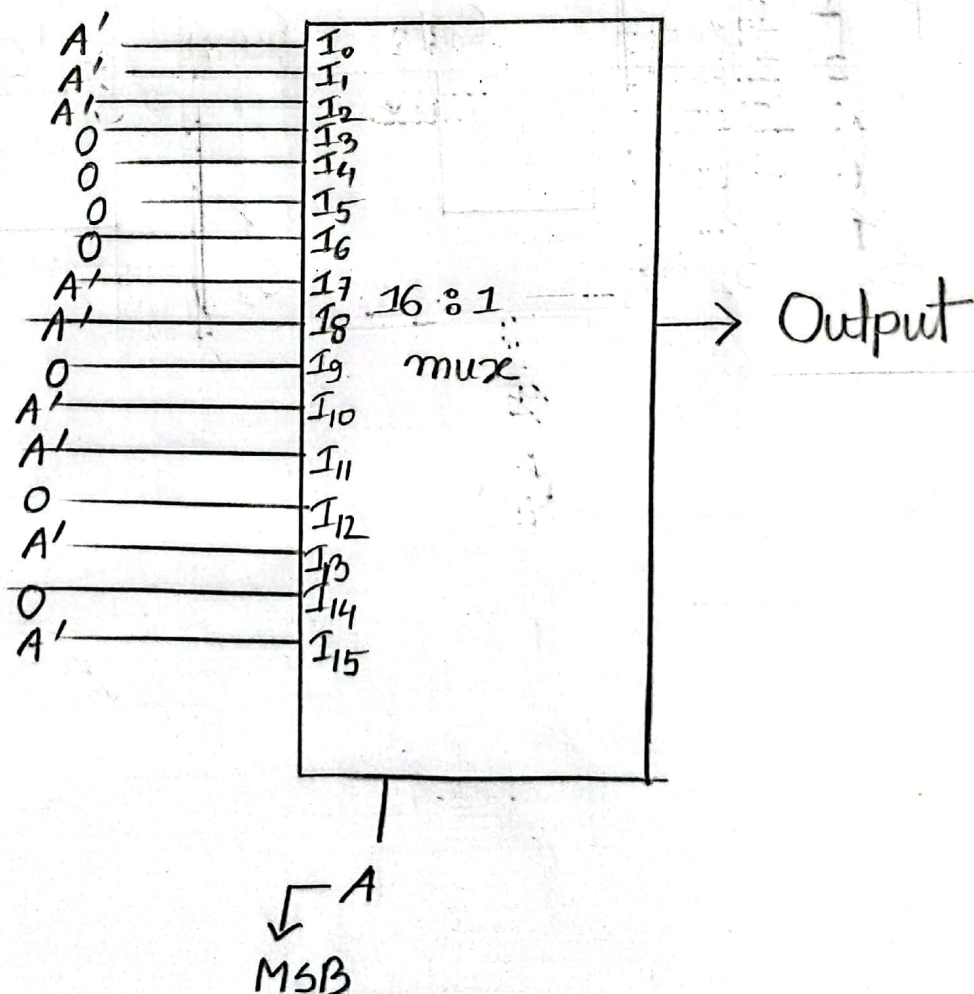 A' I₀
A' I₁
A' I₂
0 I₃
0 I₄
0 I₅
0 I₆
A' I₇
A' I₈
0 I₉
A' I₁₀
A' I₁₁
0 I₁₂
A' I₁₃
0 I₁₄
A' I₁₅
16:1
mux
Output
A
MSB